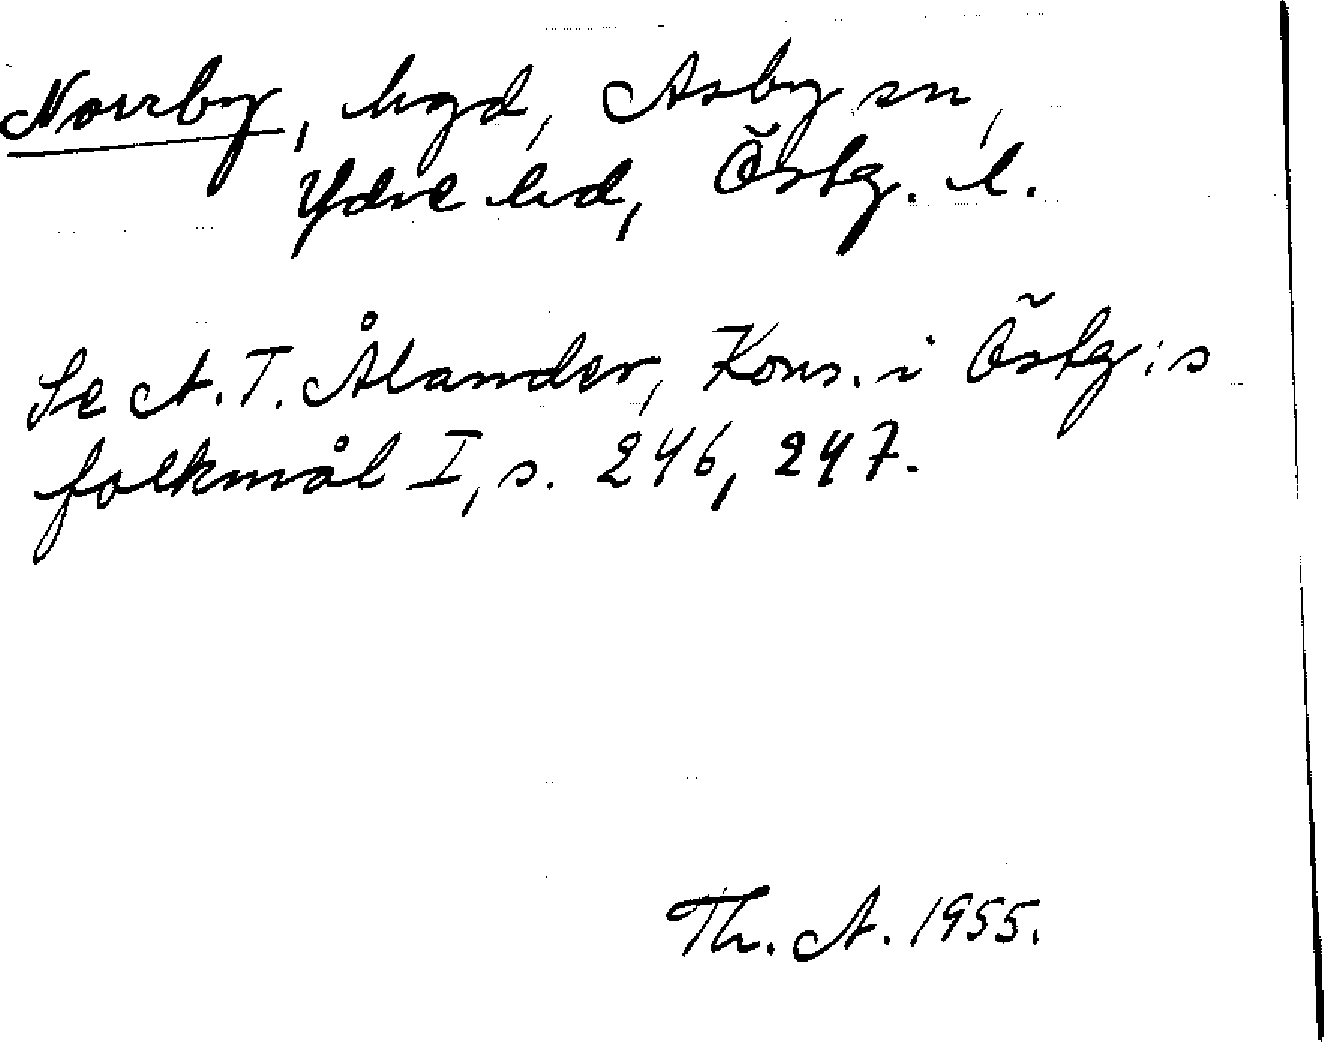 Norrby, hgd, Asby sn,
Ydre hd, Östg. l.
Se A. T. Ålander, Kons. i Östg:s
folkmål I, s. 246, 247.
Th. A. 1955.